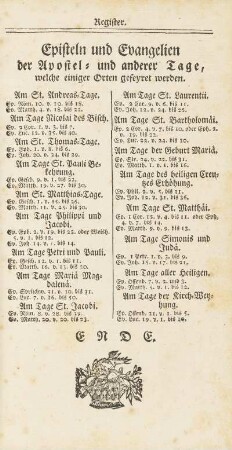 Register.
Episteln und Evangelien
der Apostel- und anderer Tage,
welche einiger Orten gefeyret werden.
Am St. Andreas-Tage.
Ep. Röm. 10. v. 10. bis 18.
Ev. Matth. 4. v. 18. bis 22.
Am Tage Nicolai des Bisch.
Ep. 2 Cor. 1. v. 3. bis 7.
Ev. Luc. 12. v. 35. bis 40.
Am St. Thomas-Tage.
Ev. Joh. 20. v. 24. bis 29.
Am Tage St. Pauli Be-
kehrung.
Ep. Gesch. 9. v. 1. bis 22.
Ev. Matth. 19. v. 27. bis 30.
Am St. Matthias-Tage.
Ep. Gesch. 1. v. 15. bis 26.
Ev. Matth. 11. v. 25. bis 30.
Am Tage Philippi und
Jacobi.
Ev. Joh. 14. v. 1. bis 14.
Am Tage Petri und Pauli.
Ep. Gesch. 12. v. 1. bis 11.
Ev. Matth. 16. v. 13. bis 20.
Am Tage Mariä Mag-
dalenä.
Ep. Sprichw. 31. v. 10. bis 31.
Ev. Luc. 7. v. 36. bis 50.
Am Tage St. Jacobi.
Ep. Röm. 8. v. 28. bis 39.
Ev. Matth. 20. v. 20. bis 23.
Am Tage St. Laurentii.
Ep. 2 Cor. 9. v. 6. bis 11.
Ev. Joh. 12. v. 24. bis 26.
Am Tage St. Bartholomäi.
Ep. 2 Cor. 4. v. 7. bis 10. oder Eph. 2.
v. 19. bis 22.
Ev. Luc. 22. v. 24. bis 30.
Am Tage der Geburt Mariä.
Ev. Matth. 1. v. 1. bis 16.
Am Tage des heiligen Creu-
tzes Erhöhung.
Ep. Phil. 2. v. 5. bis 11.
Ev. Joh. 12. v. 31. bis 36.
Am Tage St. Matthäi.
Ep. 1 Cor. 12. v. 4. bis 11. oder Eph. 4.
v. 7. bis 14.
Ev. Matth. 9. v. 9. bis 13.
Am Tage Simonis und
Judä.
Ep. 1 Pet. 1. v. 3. bis 9.
Ev. Joh. 15. v. 17. bis 21.
Am Tage aller Heiligen.
Ep. Offenb. 7. v. 2. bis 12.
Am Tage der Kirch-Wey-
hung.
Ep. Offenb. 21. v. 1. bis 5.
Ev. Luc. 19. v. 1. bis 10.
ENDE.